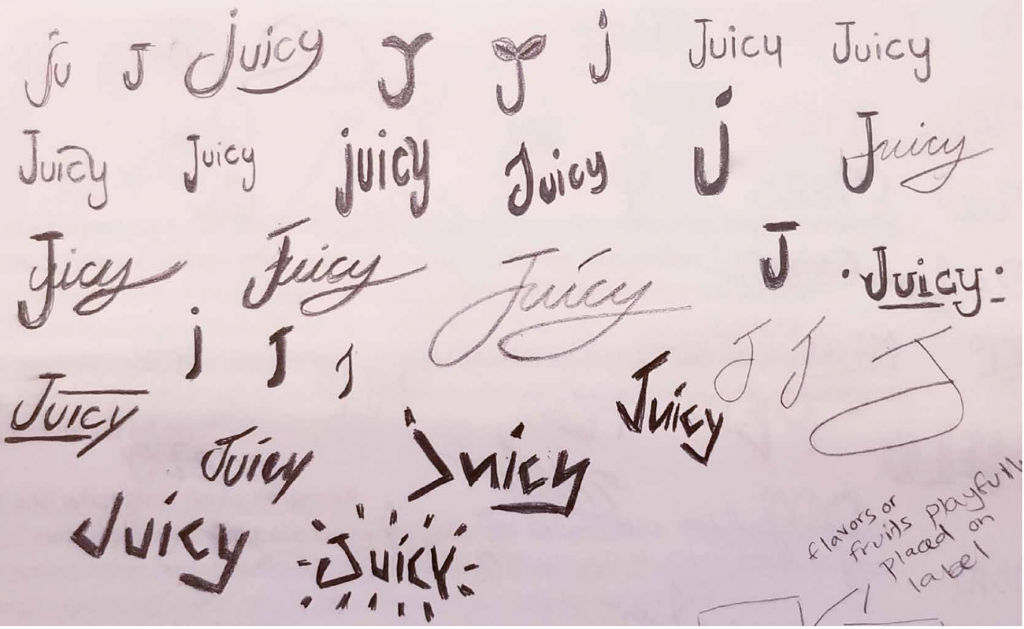 ju J juicy J J j Juicy Juicy
Juicy Juicy juicy Juicy j Juicy
Juicy Juicy Juicy J Juicy
j J J J J J
Juicy Juicy
Juicy Juicy
Juicy Juicy
flavors or
fruits playfully
placed on
label